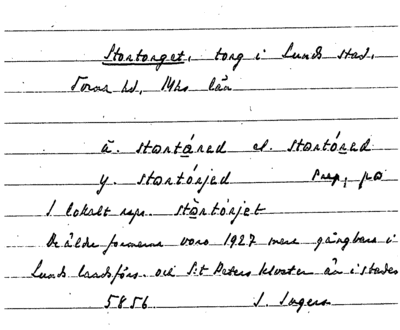 Stortorget, torg i Lunds stad,
Torna hd, Mhs län
ä. stortáred el. stortóred
y. stortórjed Prep. på
I lokalt rspr. stòrtórjet
De äldre formerna voro 1927 mera gångbara i
Lunds landsförs. och S:t Peters kloster än i staden
5856 I. Ingers